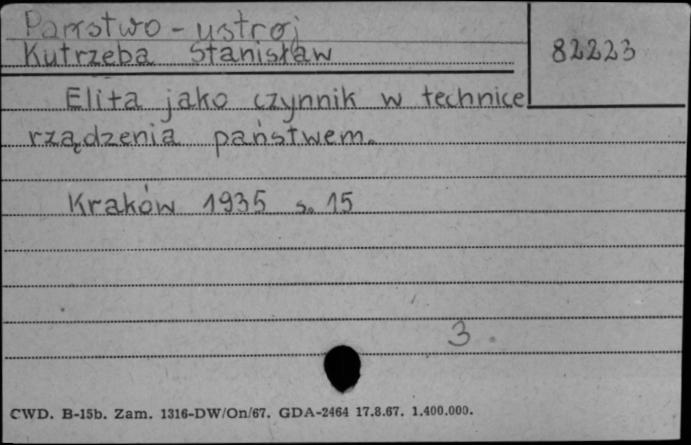 Państwo - ustrój
Kutrzeba Stanisław
82223
Elita jako czynnik w technice
rządzenia państwem.
Kraków 1935 s. 15
3.
CWD. B-15b. Zam. 1316-DW/On/67. GDA-2464 17.8.67. 1.400.000.